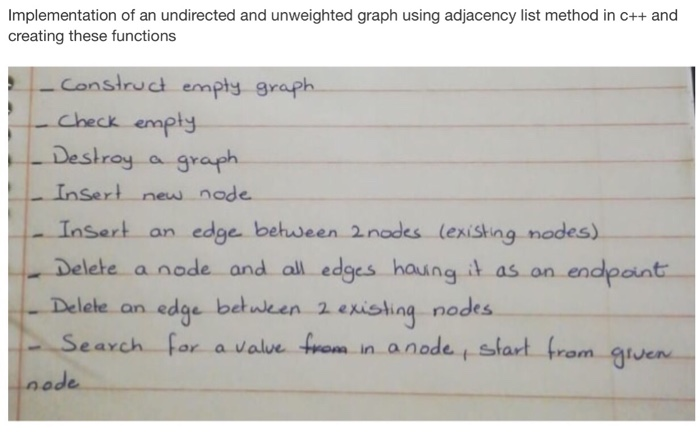 Implementation of an undirected and unweighted graph using adjacency list method in c++ and
creating these functions
- Construct empty graph
- Check empty
- Destroy a graph
- Insert new node
- Insert an edge between 2 nodes (existing nodes)
- Delete a node and all edges having it as an endpoint
- Delete an edge between 2 existing nodes
- Search for a value from in a node, start from given
node